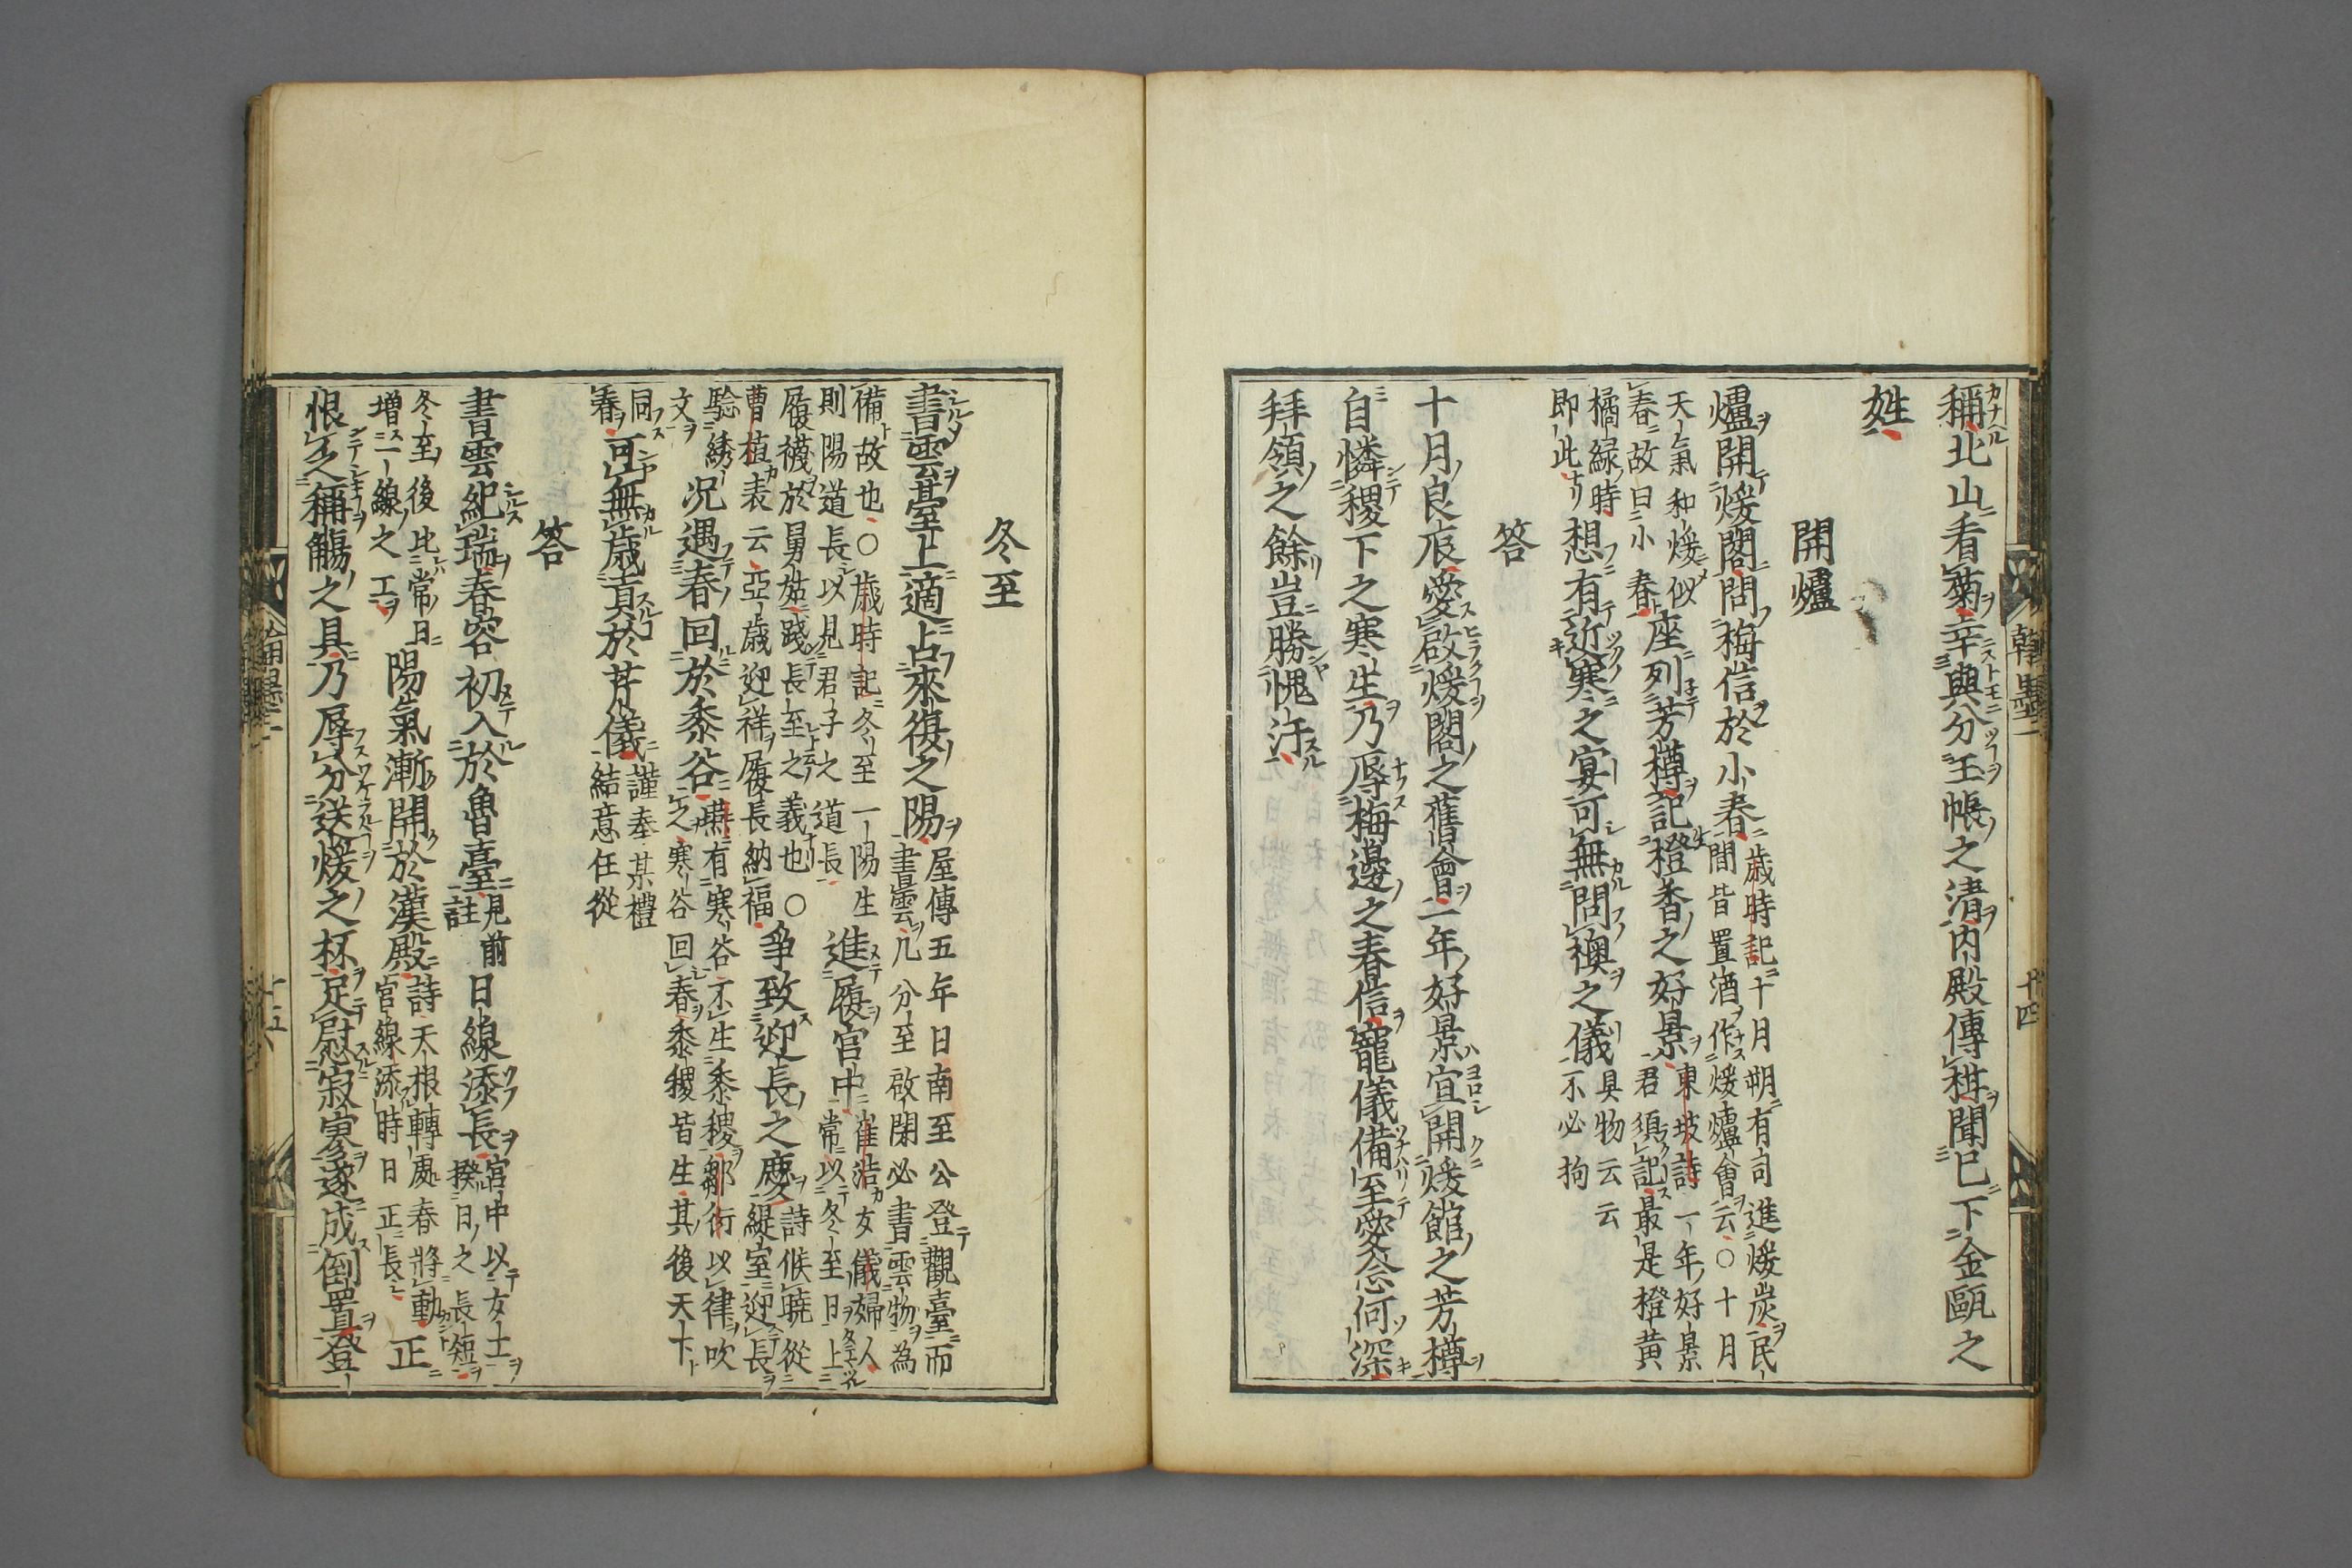 稱北山看菊幸與分玉帳之清内殿傳柑聞已下金甌之
姓
開爐
爐開煖閣問梅信於小春
歳時記十月朔有司進煖炭民
間皆置酒作煖爐會云○十月
天氣和煖似
春故曰小春
座列芳樽記橙香之好景
東坡詩一年好景
君須記最是橙黄
橘緑時
即此
想有近寒之宴可無問襖之儀
具物云云
不必拘
答
十月良辰愛啟煖閣之舊會一年好景宜開煖館之芳樽
自憐稷下之寒生乃辱梅邊之春信寵儀備至愛念何深
拜領之餘豈勝愧汗
翰墨一
十四
冬至
書雲臺上適占來復之陽
屋傳五年日南至公登觀臺而
書雲凡分至啟閉必書雲物為
備故也○歳時記冬至一陽生
則陽道長以見君子之道長
進履宮中
崔浩女儀婦人
常以冬至日上
履襪於舅姑踐長至之義也○
曹植表云亞歳迎祥履長納福
爭致迎長之慶
詩候曉從
緹室迎長
驗綉
文
况遇春回於黍谷
燕有寒谷不生黍稷鄒衍以律吹
之寒谷回春黍稷皆生其後天下
同
春
可無歳貢於芹儀
謹奉某禮
結意任從
答
書雲紀瑞春容初入於魯臺
見前
註
日線添長
宮中以女士
揆日之長短
冬至後比常日
増一線之工
陽氣漸開於漢殿
詩天根轉處春將動
官線添時日正長
正
恨乏稱觴之具乃辱分送煖之杯足慰寂寥遂成倒置登